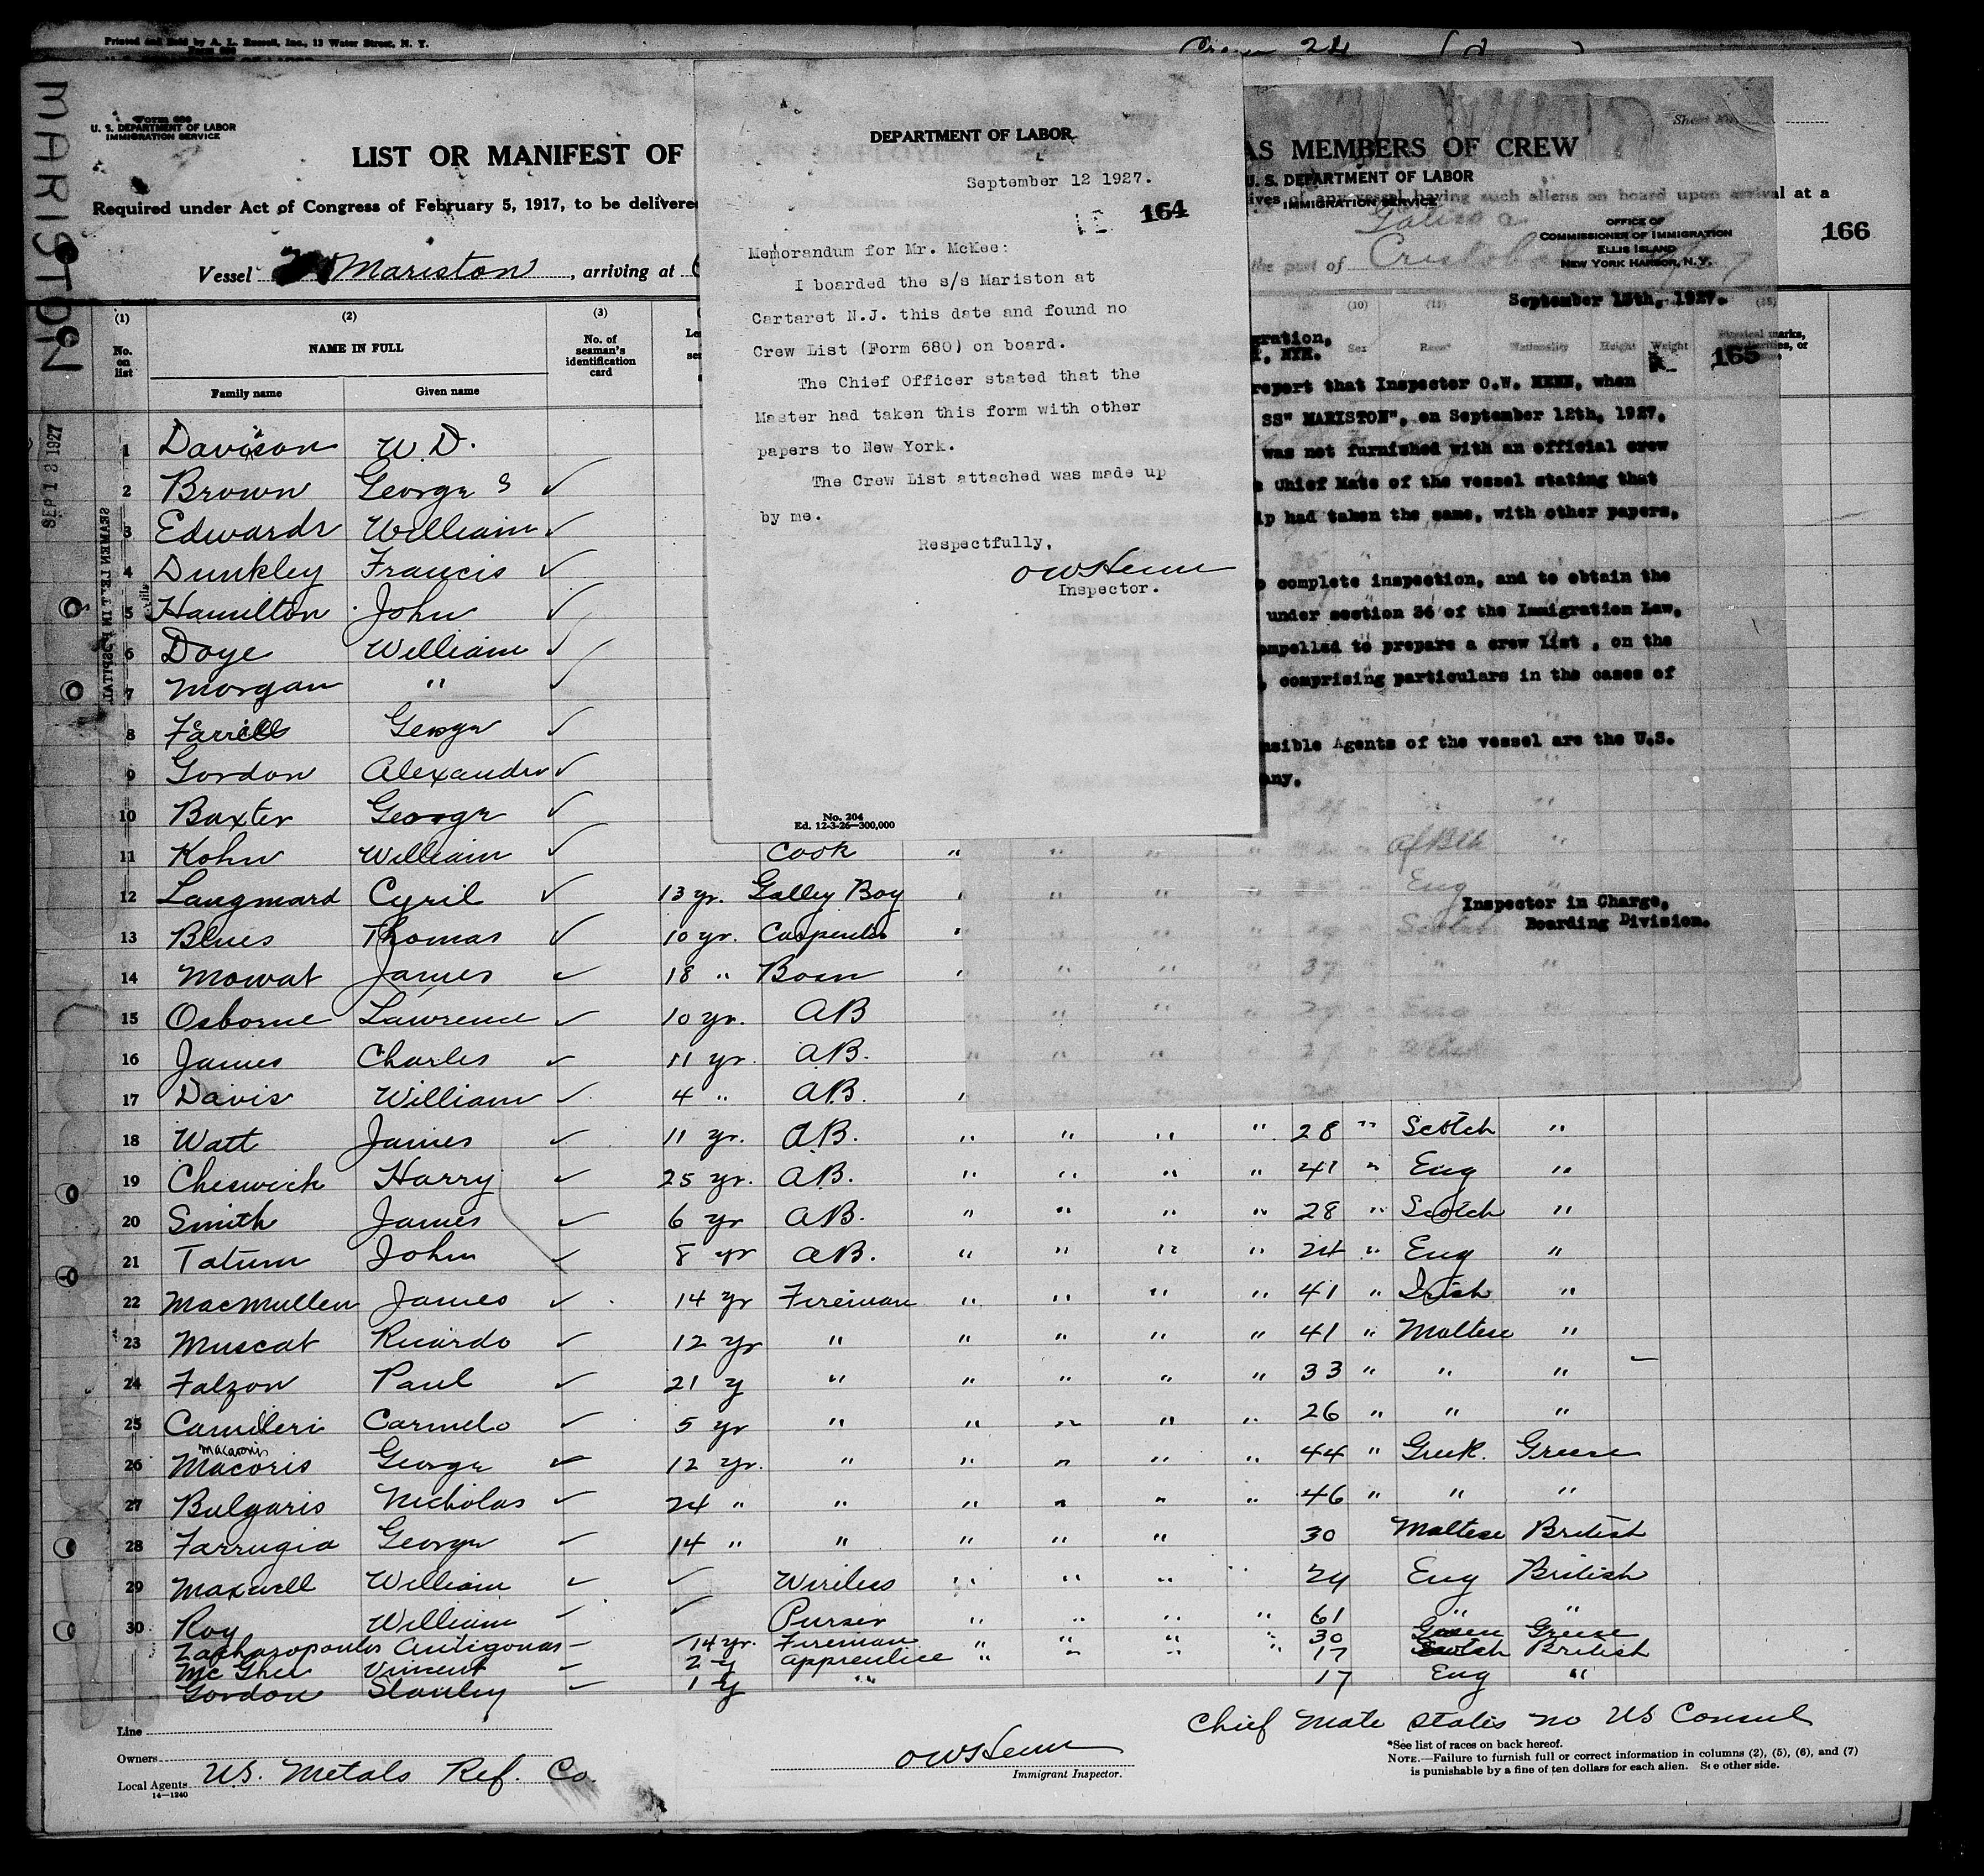 Printed and Sold by A. L. Russell, Inc., 13 Water Street, N. Y.
Form 680
24
MARISTON
Form 680
U. S. DEPARTMENT OF LABOR
IMMIGRATION SERVICE
LIST OR MANIFEST OF
AS MEMBERS OF CREW
Required under Act of Congress of February 5, 1917, to be delivered
ives of any vessel having such aliens on board upon arrival at a
166
Vessel Mariston, arriving at
the port of Cristobal
SEP 13 1927
SEAMEN LEFT IN HOSPITAL
DEPARTMENT OF LABOR
September 12 1927.
164
Memorandum for Mr. McKee:
I boarded the s/s Mariston at
Cartaret N.J. this date and found no
Crew List (Form 680) on board.
The Chief Officer stated that the
Master had taken this form with other
papers to New York.
The Crew List attached was made up
by me.
Respectfully,
OWHenn
Inspector.
No. 204
Ed. 12-3-26—300,000
U. S. DEPARTMENT OF LABOR
IMMIGRATION SERVICE
OFFICE OF
COMMISSIONER OF IMMIGRATION
ELLIS ISLAND
NEW YORK HARBOR, N. Y.
September 13th, 1927.
165
gration,
, NYH.
report that Inspector O.W. HENN, when
SS" MARISTON", on September 12th, 1927,
was not furnished with an official crew
Chief Mate of the vessel stating that
ip had taken the same, with other papers,
complete inspection, and to obtain the
under section 36 of the Immigration Law,
ompelled to prepare a crew list , on the
, comprising particulars in the cases of
nsible Agents of the vessel are the U.S.
any.
Inspector in Charge,
Boarding Division.
(1) (2) (3) (10) (11)
No. on list NAME IN FULL No. of seaman's identification card Sex Race* Nationality Height Weight Physical marks,
Family name Given name
1 Davison W. D.
2 Brown George S ✓
3 Edwards William ✓
4 Dunkley Francis ✓
5 Hamilton John ✓
6 Doye William ✓
7 Morgan " ✓
8 Farrell George ✓
9 Gordon Alexander ✓
10 Baxter George ✓
11 Kohn William ✓ Cook " " " " Af Blk "
12 Langmard Cyril ✓ 13 yr. Galley Boy " " " " Eng "
13 Blues Thomas ✓ 10 yr. Carpenter " " " "
14 Mowat James ✓ 18 " Bosn " " " " 37 " " "
15 Osborne Lawrence ✓ 10 yr. AB " " " Eng
16 James Charles ✓ 11 yr. AB. " " " " 27
17 Davis William ✓ 4 " AB. "
18 Watt James ✓ 11 yr. AB. " " " " 28 " Scotch "
19 Cheswick Harry ✓ 25 yr. AB. " " " " 41 " Eng "
20 Smith James ✓ 6 yr AB. " " " " 28 " Scotch "
21 Tatum John ✓ 8 yr AB. " " " " 24 " Eng "
22 MacMullen James ✓ 14 yr Fireman " " " " 41 " Irish "
23 Muscat Ricardo ✓ 12 yr " " " " " 41 " Maltese "
24 Falzon Paul ✓ 21 y " " " " " 33 " " "
25 Camilleri Carmelo ✓ 5 yr " " " " " 26 " " "
Macaronis
26 Macoris George ✓ 12 yr. " " " " " 44 " Greek. Greece
27 Bulgaris Nicholas ✓ 24 " " " " " " 46 " " "
28 Farrugia George ✓ 14 " " " " " 30 Maltese British
29 Maxwell William ✓ ✓ Wireless " " " " 24 Eng British
30 Roy William ✓ ✓ Purser " " " " 61 " "
Zacharopoulos Antigonas 14 yr. Fireman " " " " 30 Greece
McGhee Vincent 2 y apprentice " " " " 17 Scotch British
Gordon Stanley 1 y " 17 Eng "
Chief Mate states no US Consul
Line
Owners
Local Agents U.S. Metals Ref. Co.
14—1240
OWHenn
Immigrant Inspector.
*See list of races on back hereof.
NOTE.—Failure to furnish full or correct information in columns (2), (5), (6), and (7)
is punishable by a fine of ten dollars for each alien. See other side.